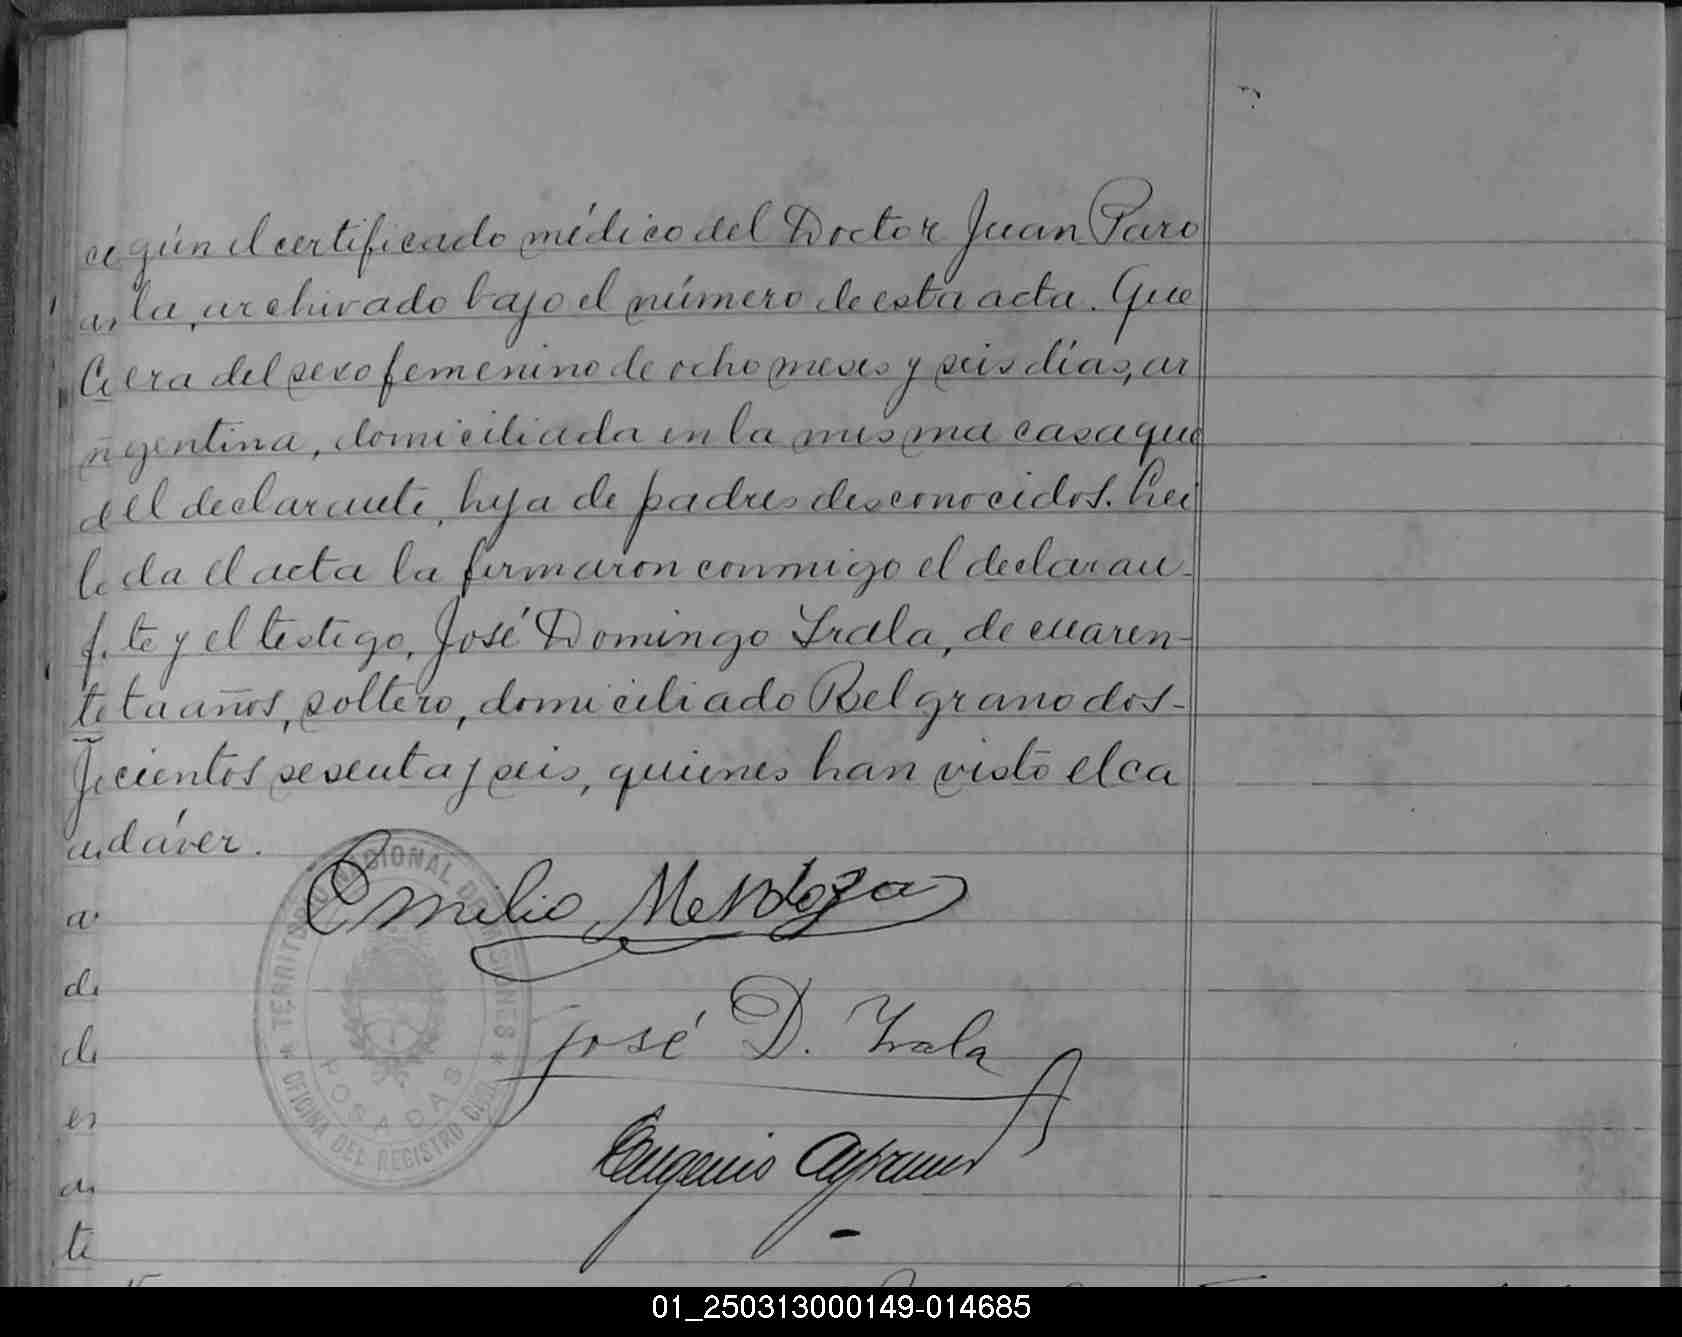 según el certificado médico del Doctor Juan Paro
la, archivado bajo el número de esta acta. Que
era del sexo femenino de ocho meses y seis días, ar
gentina, domiciliada en la misma casa que
el declarante, hija de padres desconocidos. Lei
da el acta la firmaron conmigo el declaran-
te y el testigo, José Domingo Irala, de cuaren-
ta años, soltero, domiciliado Belgrano dos-
cientos sesenta y seis, quienes han visto el ca
dáver.
Emilio Mendoza
José D. Irala
Eugenio
TERRITORIO NACIONAL DE MISIONES
POSADAS
OFICINA DEL REGISTRO CIVIL
de
de
es
te
01_250313000149-014685